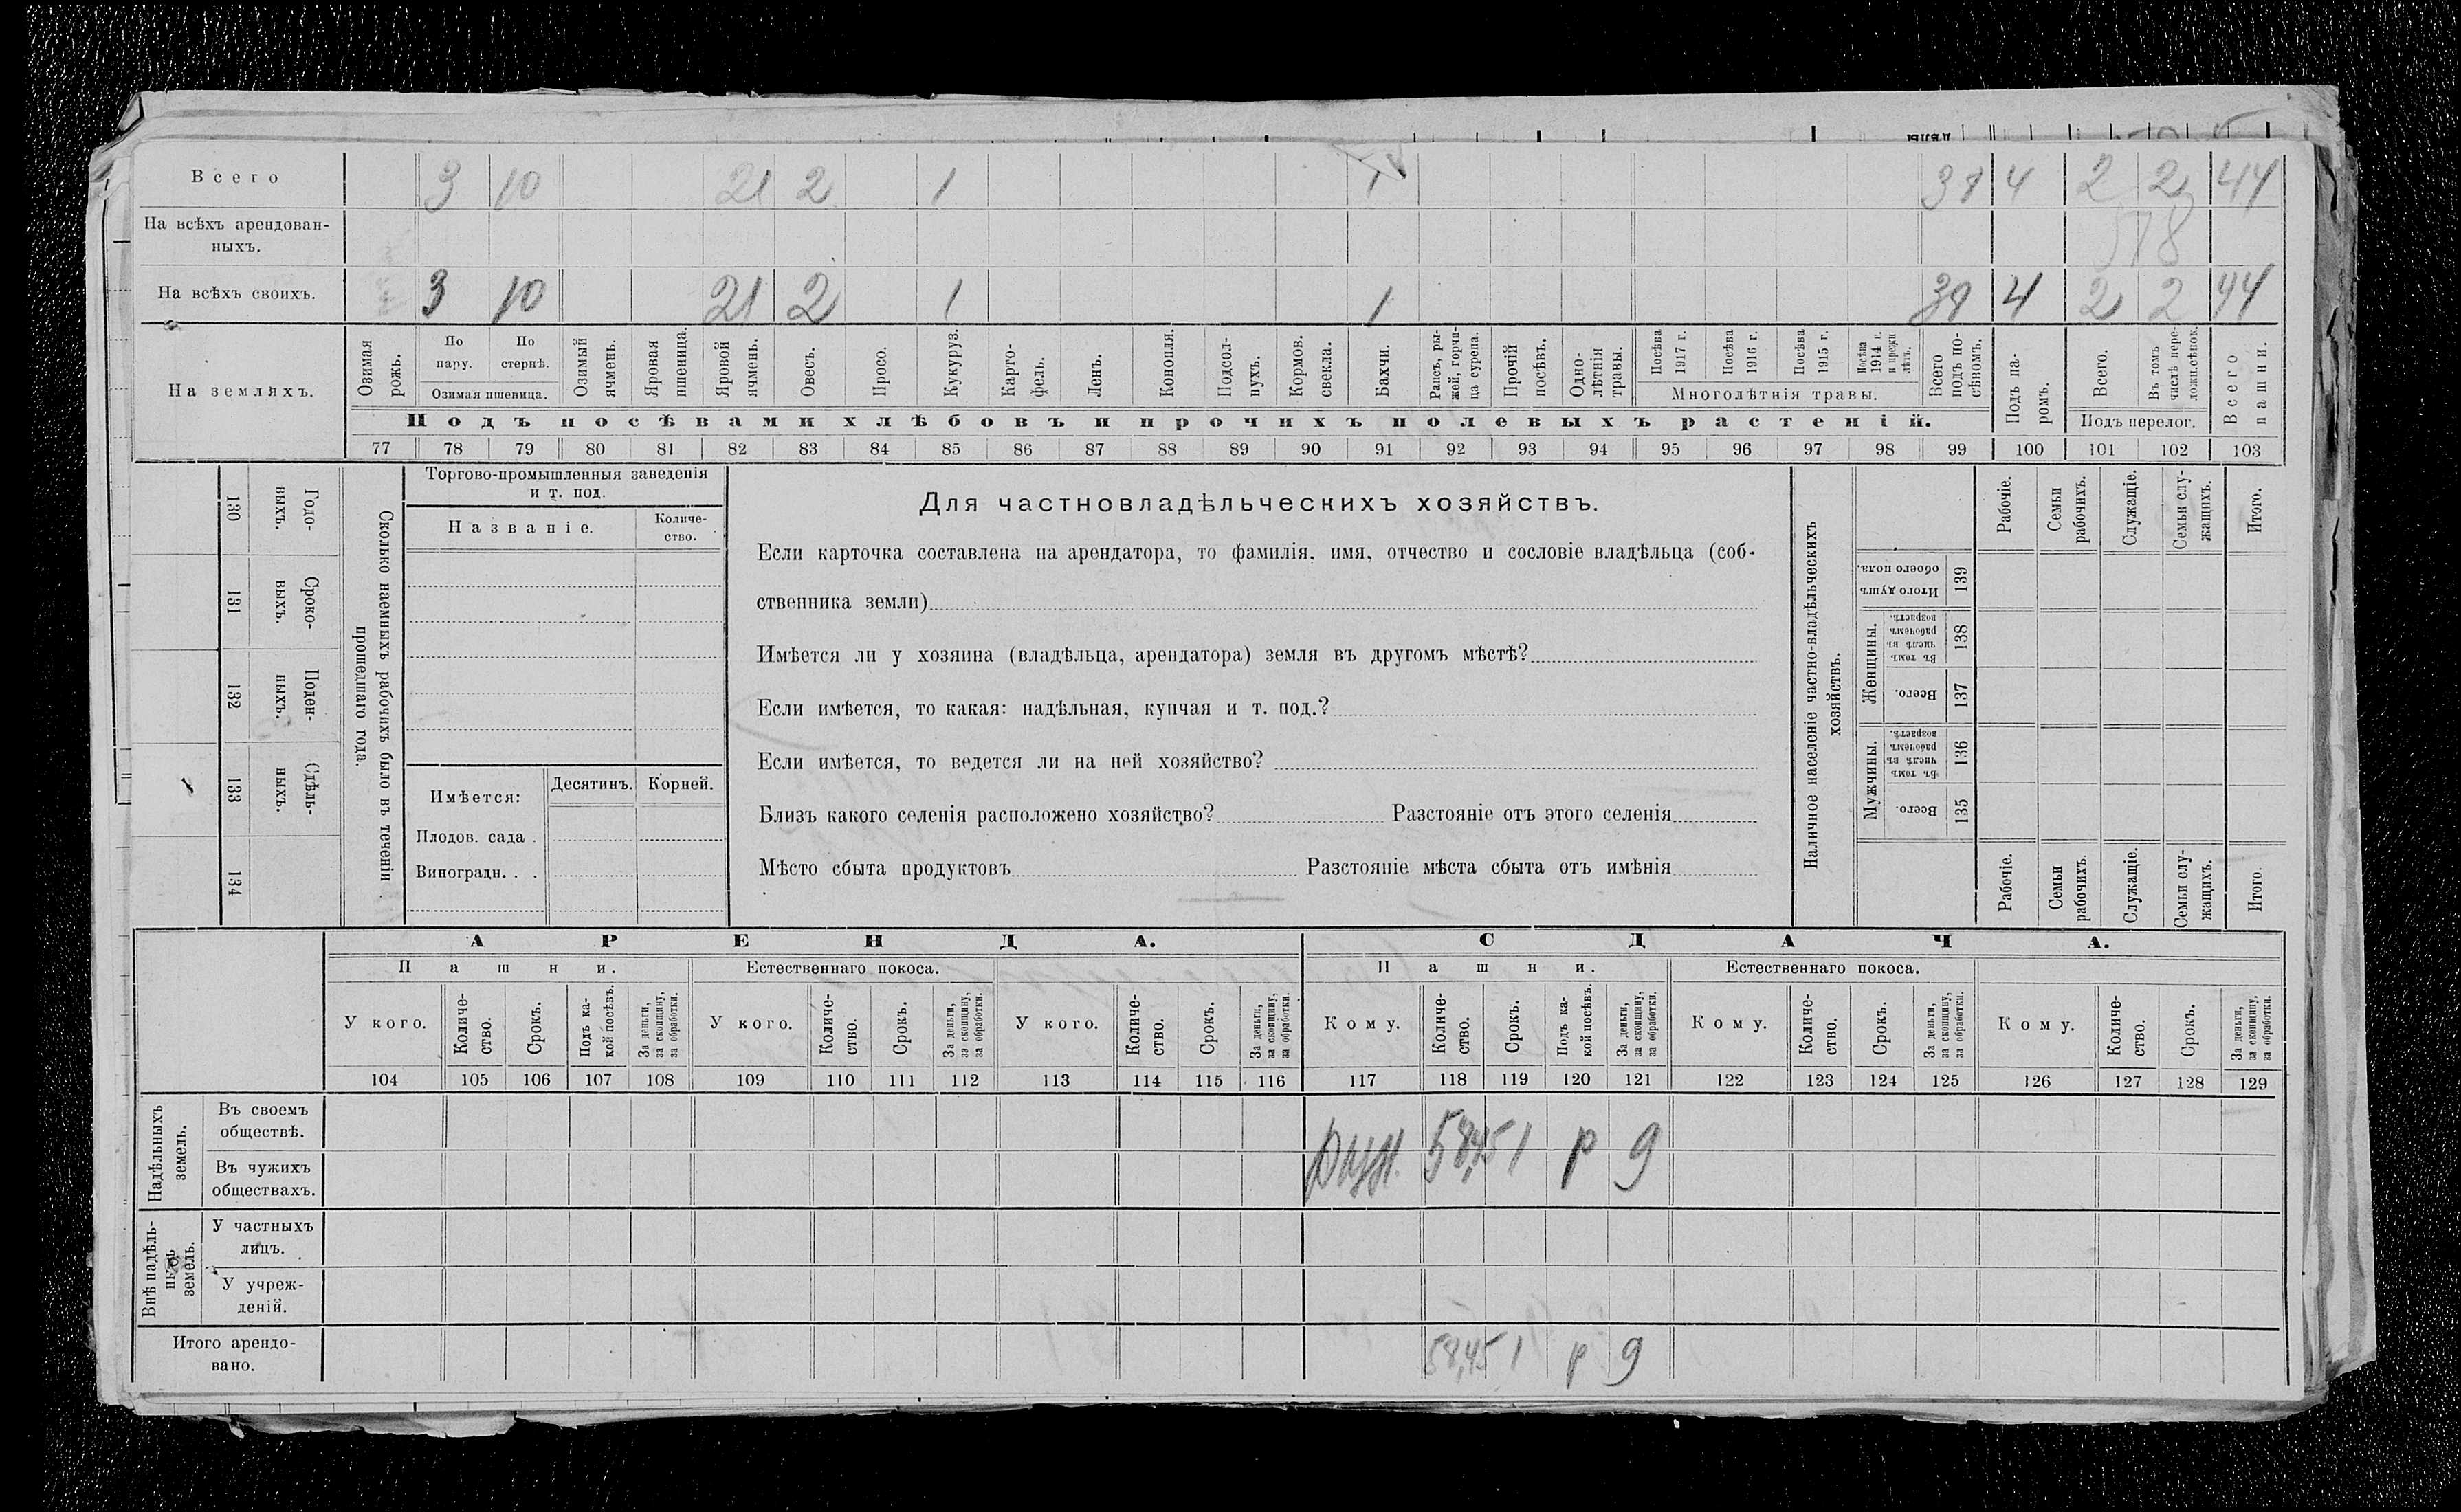 Всего 3 10 21 2 1 1 38 4 2 2 44
На всѣхъ арендован-
ныхъ.
578
На всѣхъ своихъ. 3 10 21 2 1 1 38 4 2 2 44
На земляхъ.
Озимая рожь.
По пару.
По стернѣ.
Озимая пшеница.
Озимый ячмень.
Яровая пшеница.
Яровой ячмень.
Овесъ.
Просо.
Кукуруз.
Карто-
фель.
Ленъ.
Конопля.
Подсол-
нухъ.
Кормов. свекла.
Бахчи.
Рапсъ, ры-
жей, горчи-
ца сурепа.
Прочій посѣвъ.
Одно-
лѣтнія травы.
Посѣва 1917 г.
Посѣва 1916 г.
Посѣва 1915 г.
Посѣва 1914 г. и прежн лѣтъ.
Многолѣтнія травы.
Всего подъ по-
сѣвомъ.
Подъ па-
ромъ.
Всего.
Въ томъ числѣ пере-
ложн.сѣнок.
Подъ перелог.
Всего пашни.
Подъ посѣвами хлѣбовъ и прочихъ полевыхъ растеній.
77 78 79 80 81 82 83 84 85 86 87 88 89 90 91 92 93 94 95 96 97 98 99 100 101 102 103
Сколько наемныхъ рабочихъ было въ теченіи
прошедшаго года.
Годо-
выхъ.
130
Сроко-
выхъ.
131
Поден-
ныхъ.
132
Сдѣль-
ныхъ.
133
134
Торгово-промышленныя заведенія
и т. под.
Названіе.
Количе-
ство.
Имѣется:
Десятинъ. Корней.
Плодов. сада .
Виноградн. . .
Для частновладѣльческихъ хозяйствъ.
Если карточка составлена на арендатора, то фамилія, имя, отчество и сословіе владѣльца (соб-
ственника земли)
Имѣется ли у хозяина (владѣльца, арендатора) земля въ другомъ мѣстѣ?
Если имѣется, то какая: надѣльная, купчая и т. под.?
Если имѣется, то ведется ли на ней хозяйство?
Близъ какого селенія расположено хозяйство? Разстояніе отъ этого селенія
Мѣсто сбыта продуктовъ Разстояніе мѣста сбыта отъ имѣнія
Наличное населеніе частно-владѣльческихъ
хозяйствъ.
Рабочіе.
Семьи рабочихъ.
Служащіе.
Семьи слу-
жащихъ.
Итого.
Итого душъ обоего пола.
139
Женщины.
Въ томъ числѣ въ рабочемъ возрастѣ.
138
Всего.
137
Мужчины.
Въ томъ числѣ въ рабочемъ возрастѣ.
136
Всего.
135
Рабочіе.
Семьи рабочихъ.
Служащіе.
Семьи слу-
жащихъ.
Итого.
АРЕНДА. СДАЧА.
Пашни. Естественнаго покоса. Пашни. Естественнаго покоса.
У кого.
Количе-
ство.
Срокъ.
Подъ ка-
кой посѣвъ.
За деньги, за скопщину, за обработки.
У кого.
Количе-
ство.
Срокъ.
За деньги, за скопщину, за обработки.
У кого.
Количе-
ство.
Срокъ.
За деньги, за скопщину, за обработки.
Кому.
Количе-
ство.
Срокъ.
Подъ ка-
кой посѣвъ.
За деньги, за скопщину, за обработки.
Кому.
Количе-
ство.
Срокъ.
За деньги, за скопщину, за обработки.
Кому.
Количе-
ство.
Срокъ.
За деньги, за скопщину, за обработки.
104 105 106 107 108 109 110 111 112 113 114 115 116 117 118 119 120 121 122 123 124 125 126 127 128 129
Надѣльныхъ земель.
Въ своемъ
обществѣ.
58,45 1 р 9
Въ чужихъ
обществахъ.
Внѣ надѣль-
ныхъ земель.
У частныхъ
лицъ.
У учреж-
деній.
Итого арендо-
вано.
58,45 1 р 9